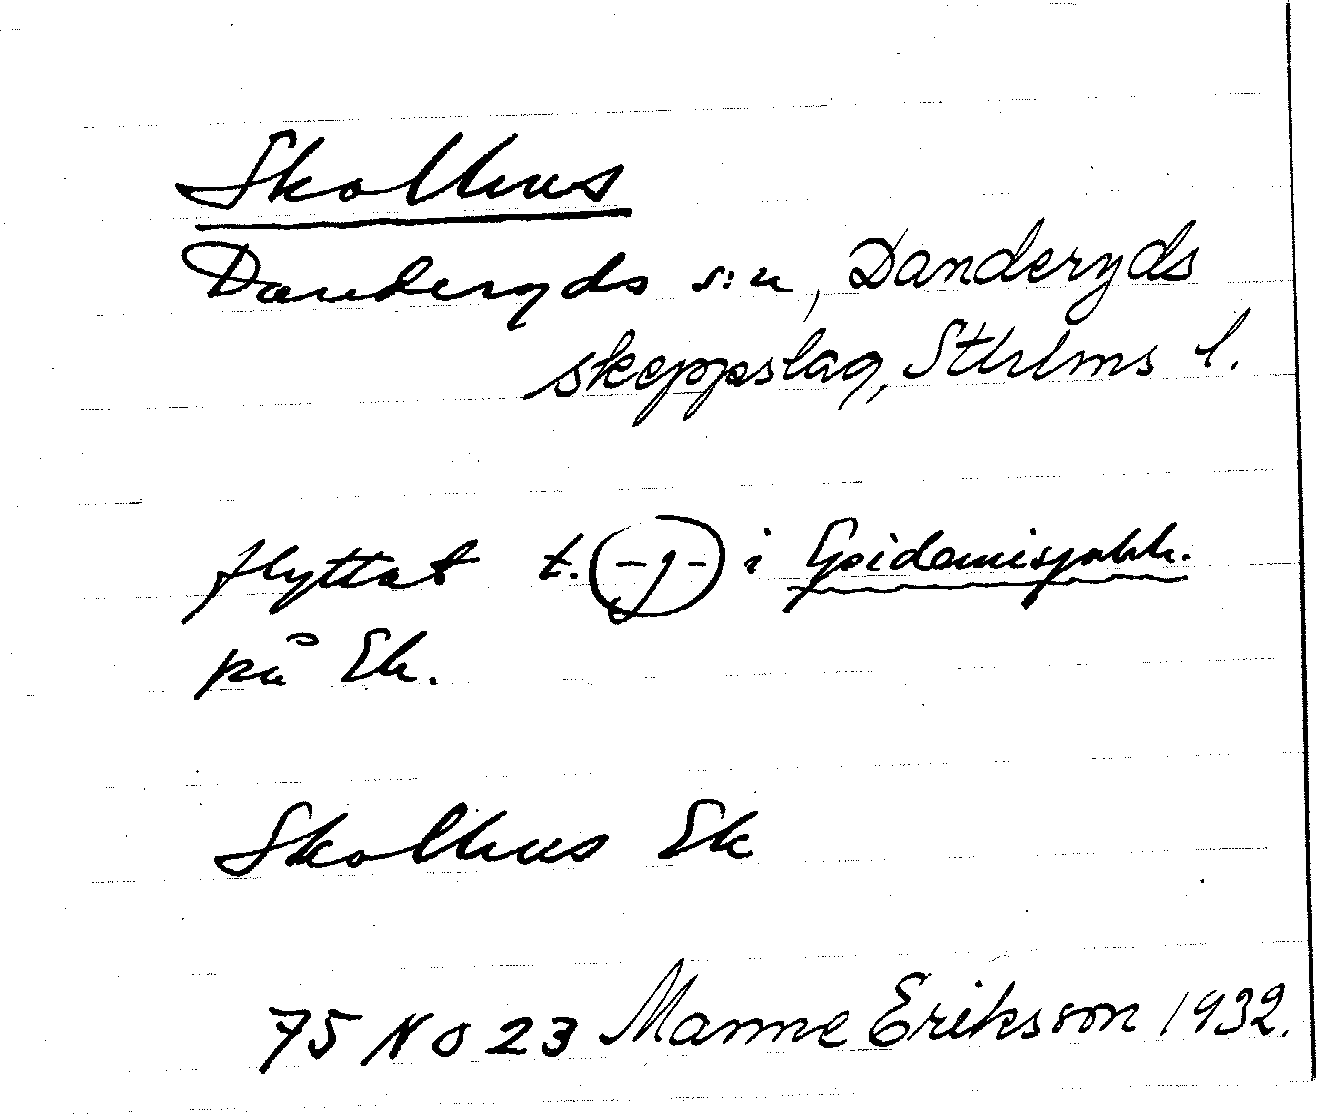 Skolhus
Danderyds s:n, Danderyds
skeppslag, Sthlms l.
flyttat t. -g- i Epidemisjukh.
på Ek.
Skolhus Ek
75 NO 23 Manne Eriksson 1932.